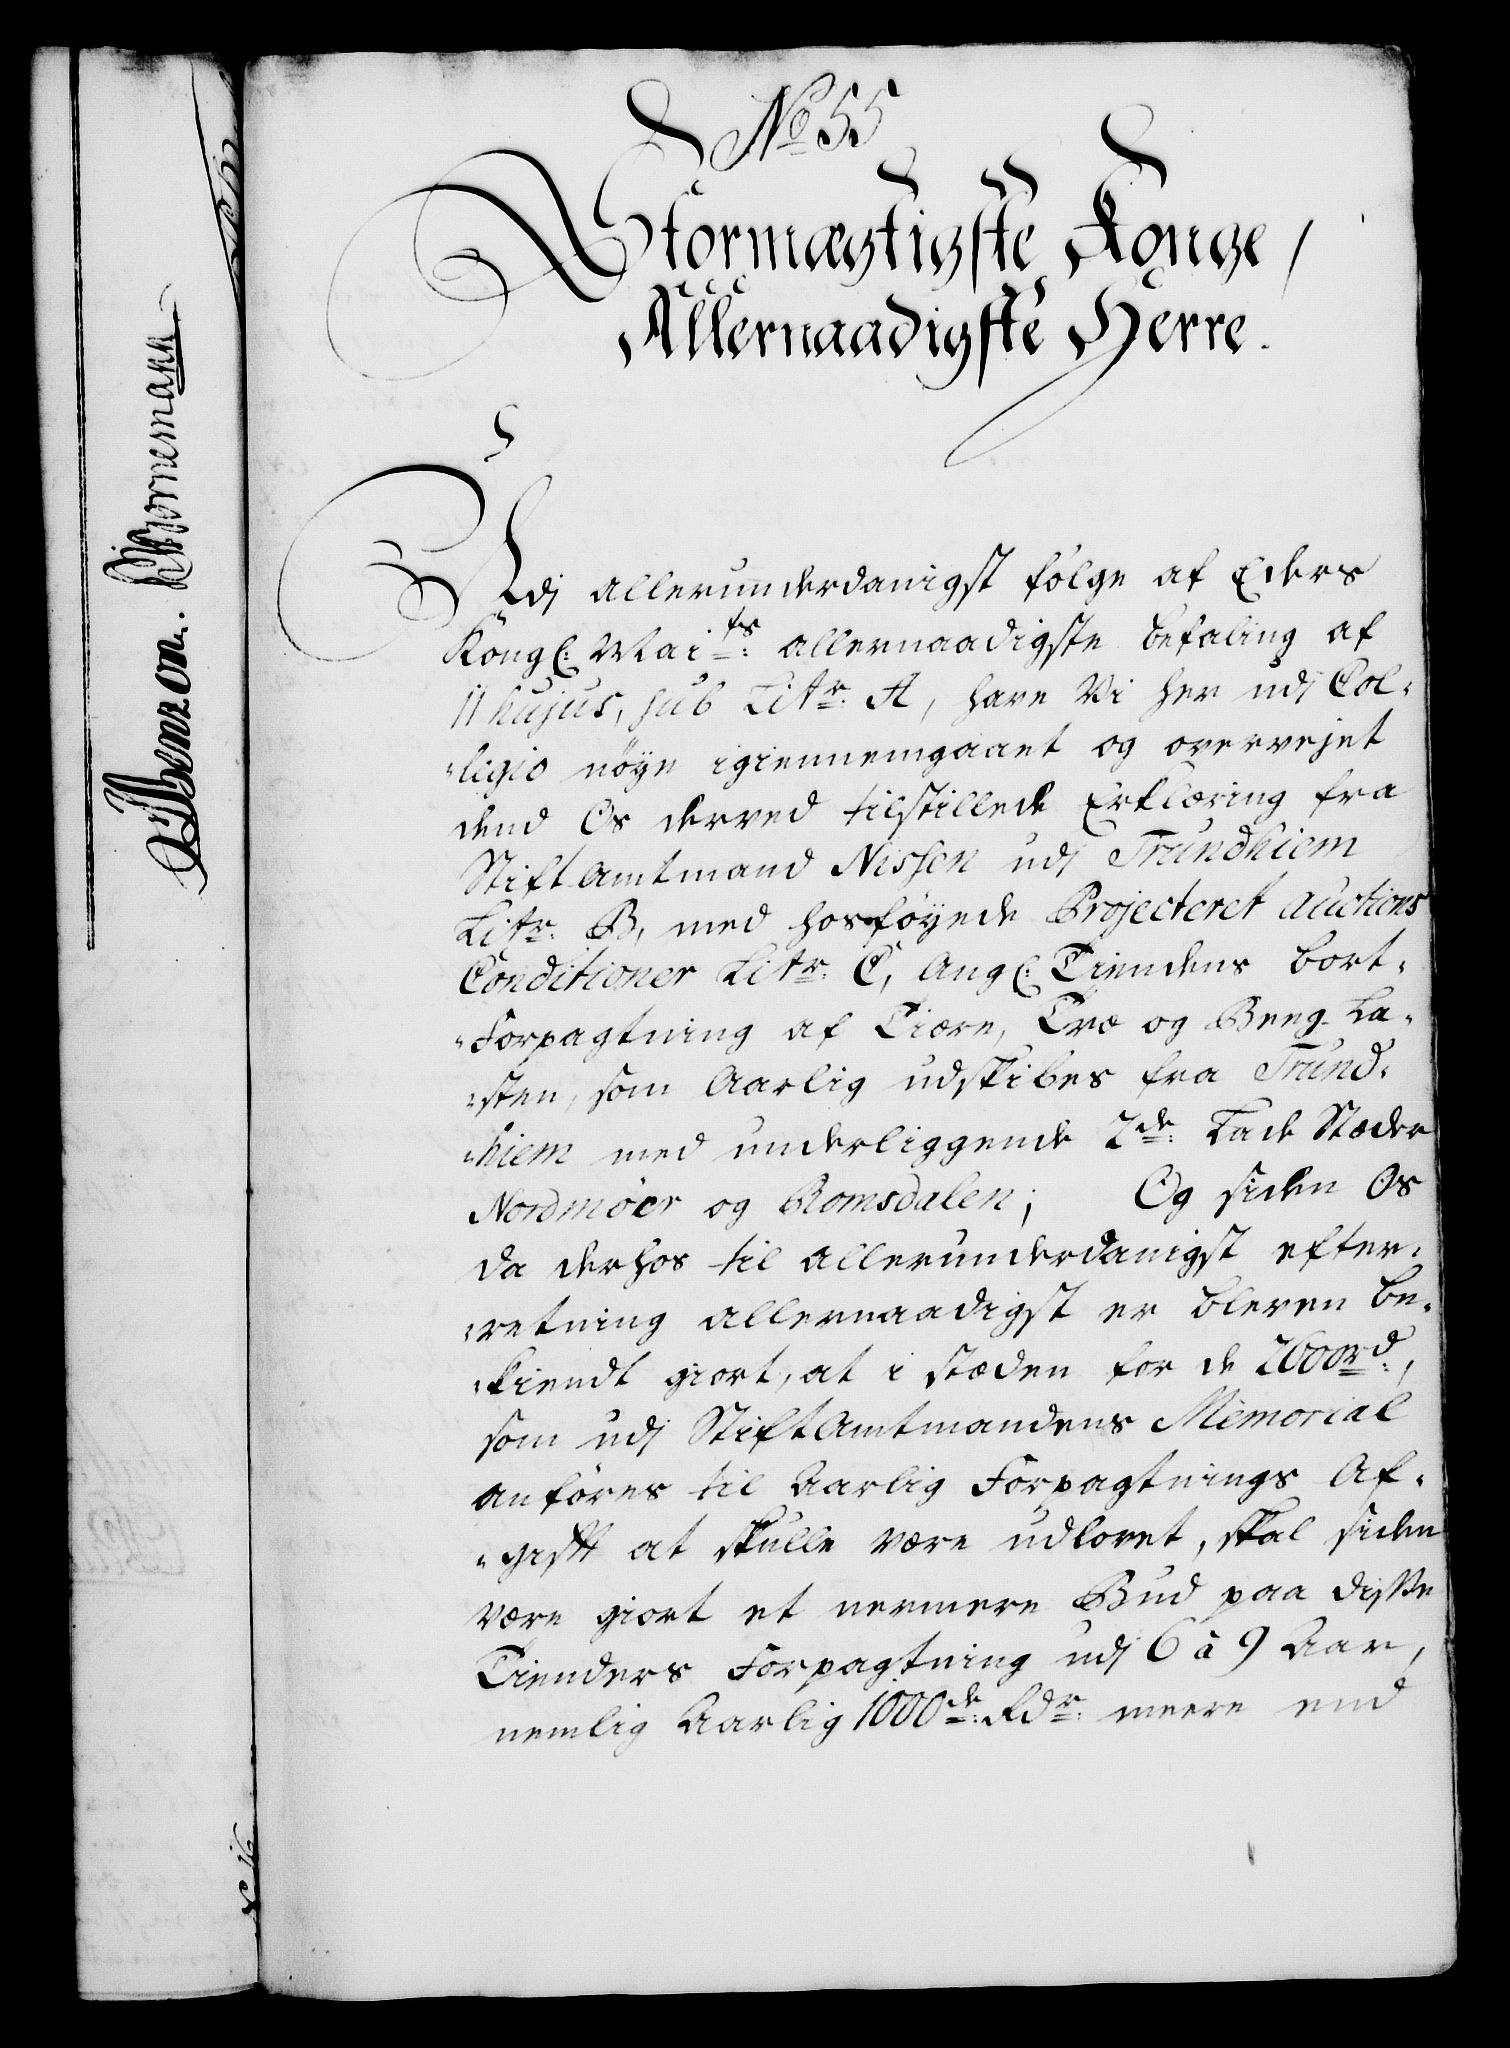 No 55
Stormægtigste Konge/
Allernaadigste Herre.
Udj allerunderdanigst følge af Eders
Kongl: Maits: allernaadigste befaling af
11 hujus, sub Litr: A, have Vi her udj Col-
-legio nöye igiennemgaaet og overvejet
dend Os derved tilstillede Erklæring fra
Stift Amtmand Nissen udj Trundhiem
Litr: B, med hosföyede Projecteret Auctions
Conditioner Litr: C, Angl: Tiendens bort-
-Forpagtning af Tiære, Træ og Breng-La-
-sten, som Aarlig udskibes fra Trund-
-hiem med underliggende 2de: Lade Stæder
Nordmöer og Romsdalen; Og siden Os
da derhos til allerunderdanigst efter-
-retning allernaadigst er bleven be-
-kiendt giort, at i stæden for de 2600rd:,
som udj StiftAmtmandens Memorial
anföres til Aarlig Forpagtnings Af-
-gifft at skulle være udlovet, skal siden
være giort et nermere Bud paa disse
Tienders Forpagtning udj 6 à 9 Aar,
nemlig Aarlig 1000de: Rdr: meere end
Benzon. Bornemann